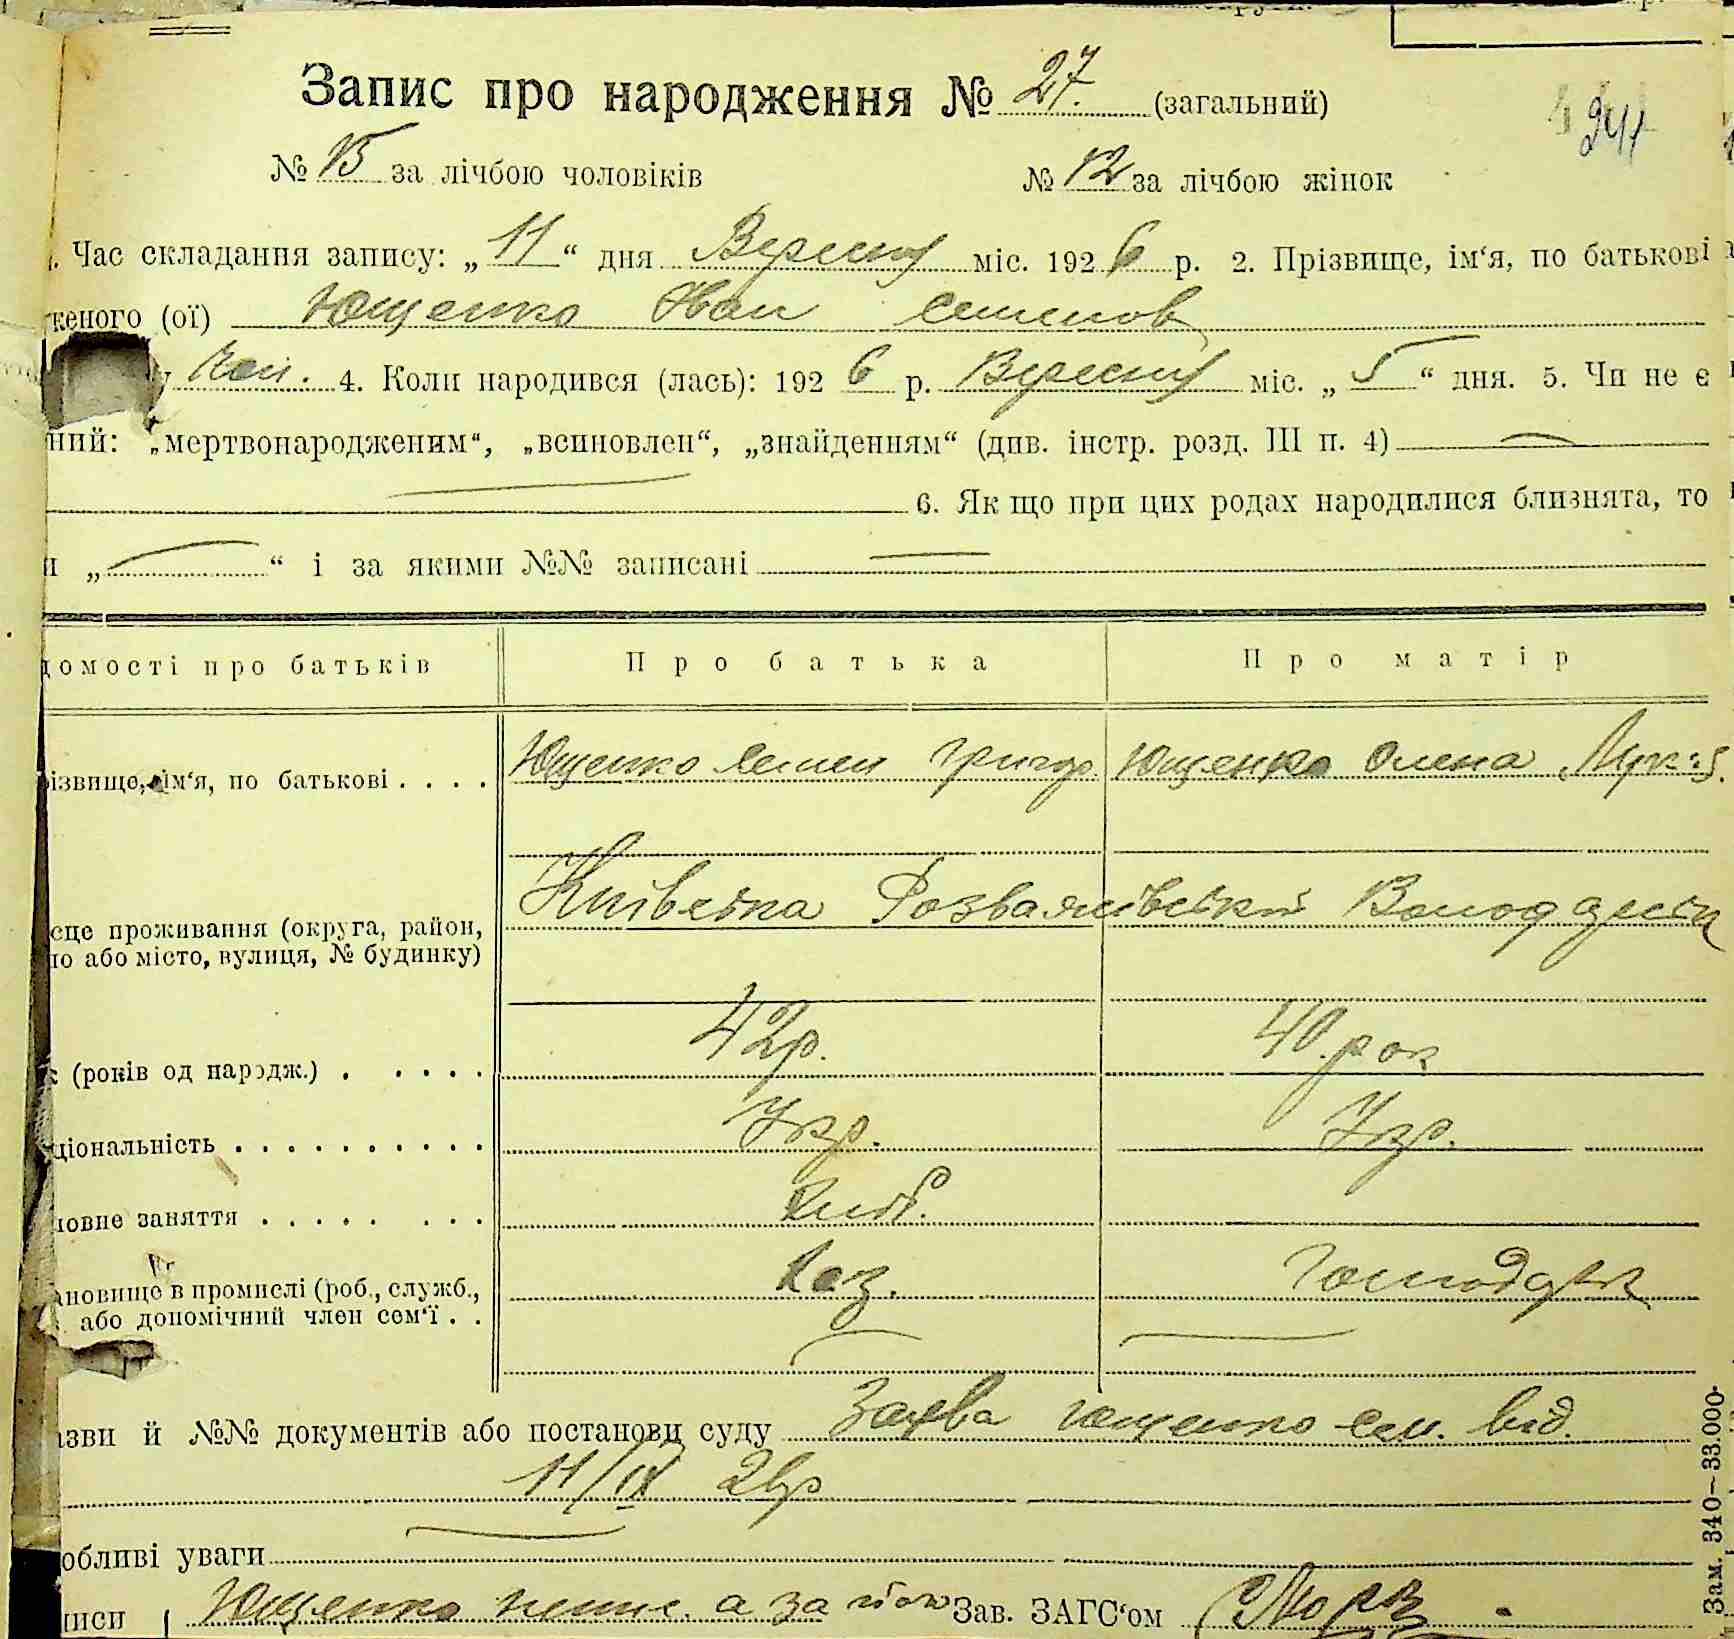 Запис про народження № 27. (загальний)
241
№ 15 за лічбою чоловіків № 12 за лічбою жінок
. Час складання запису: „11“ дня Вересня міс. 1926 р. 2. Прізвище, ім‘я, по батькові
женого (ої) Ющенко Іван Семенов
у Чол. 4. Коли народився (лась): 1926 р. Вересня міс. „5“ дня. 5. Чи не є
ний: „мертвонародженим“, „всиновлен“, „знайденням“ (див. інстр. розд. III п. 4)
6. Як що при цих родах народилися близнята, то
и „ “ і за якими №№ записані
домості про батьків Про батька Про матір
різвище, ім‘я, по батькові . . . . Ющенко Семен Григор Ющенко Олена
Київська Розважівський Володарка
сце проживання (округа, район,
ло або місто, вулиця, № будинку)
к (років од народж.) . . . . . 42р. 40 рок
ціональність . . . . . . . . . . Укр. Укр.
ловне заняття . . . . . . . . Хліб.
ановище в промислі (роб., служб., Хаз. Господарк
або допомічний член сем‘ї . .
азви й №№ документів або постанови суду Заява Ющенко Сем. від.
11/IX 26р
обливі уваги
писи Ющенко непис. а за його Зав. ЗАГС‘ом
Зам. 340—33.000